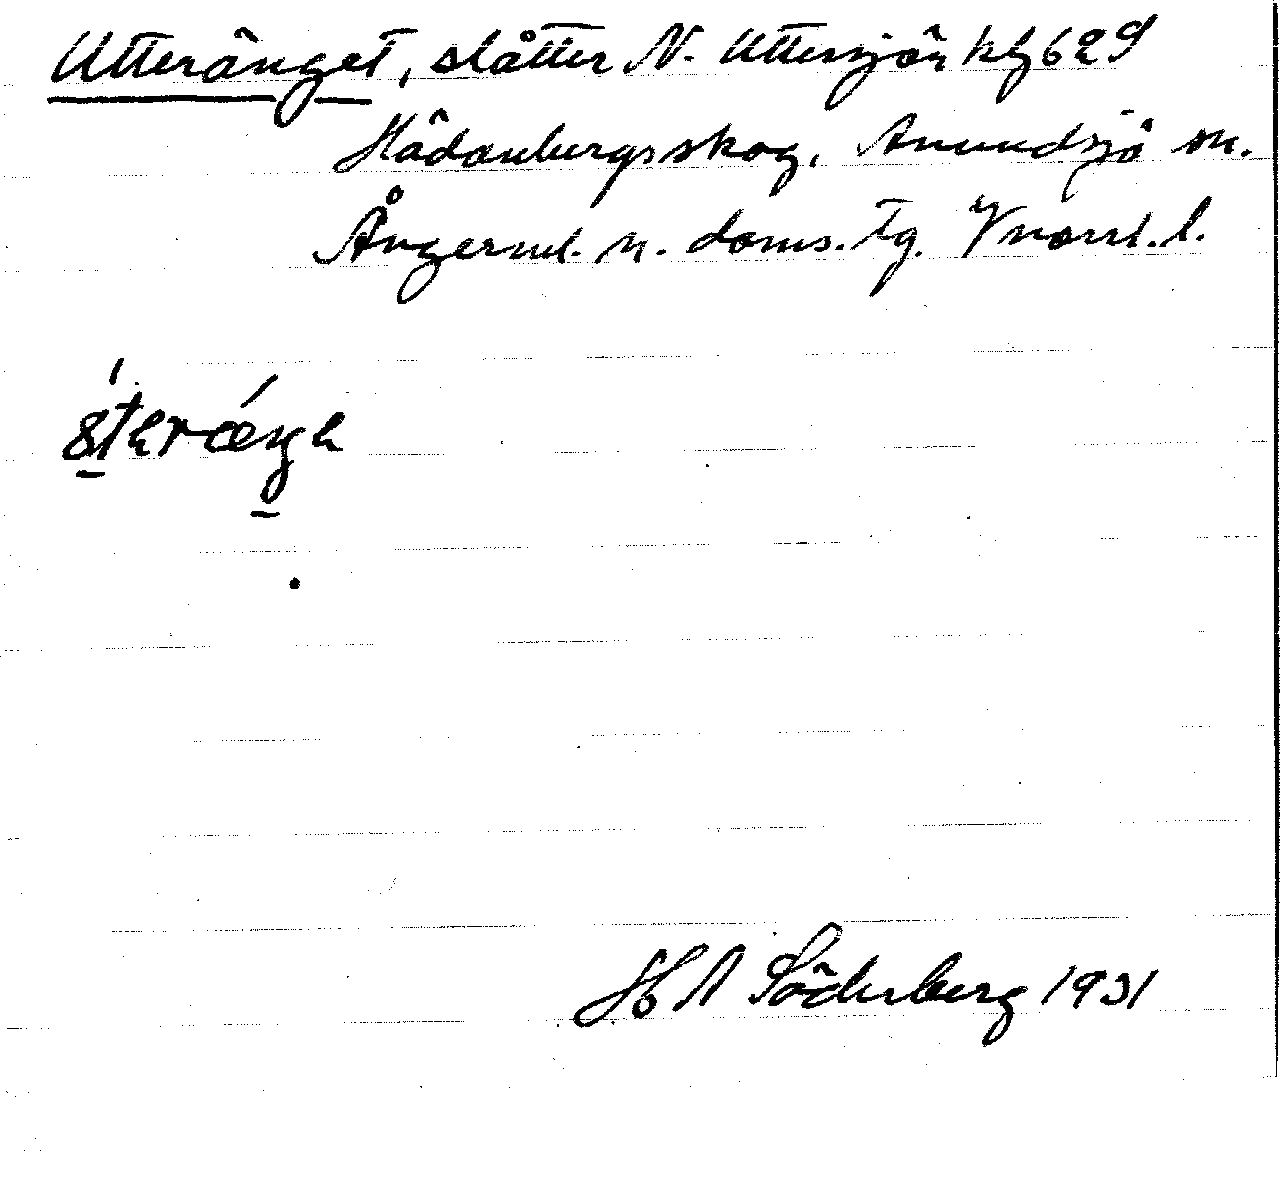 Utteränget, slåtter N. Uttersjön kbl 629
Hädanbergsskog, Anundsjö sn.
Ångerml. n. doms. tg. Vnorrl. l.
H A Söderberg 1931